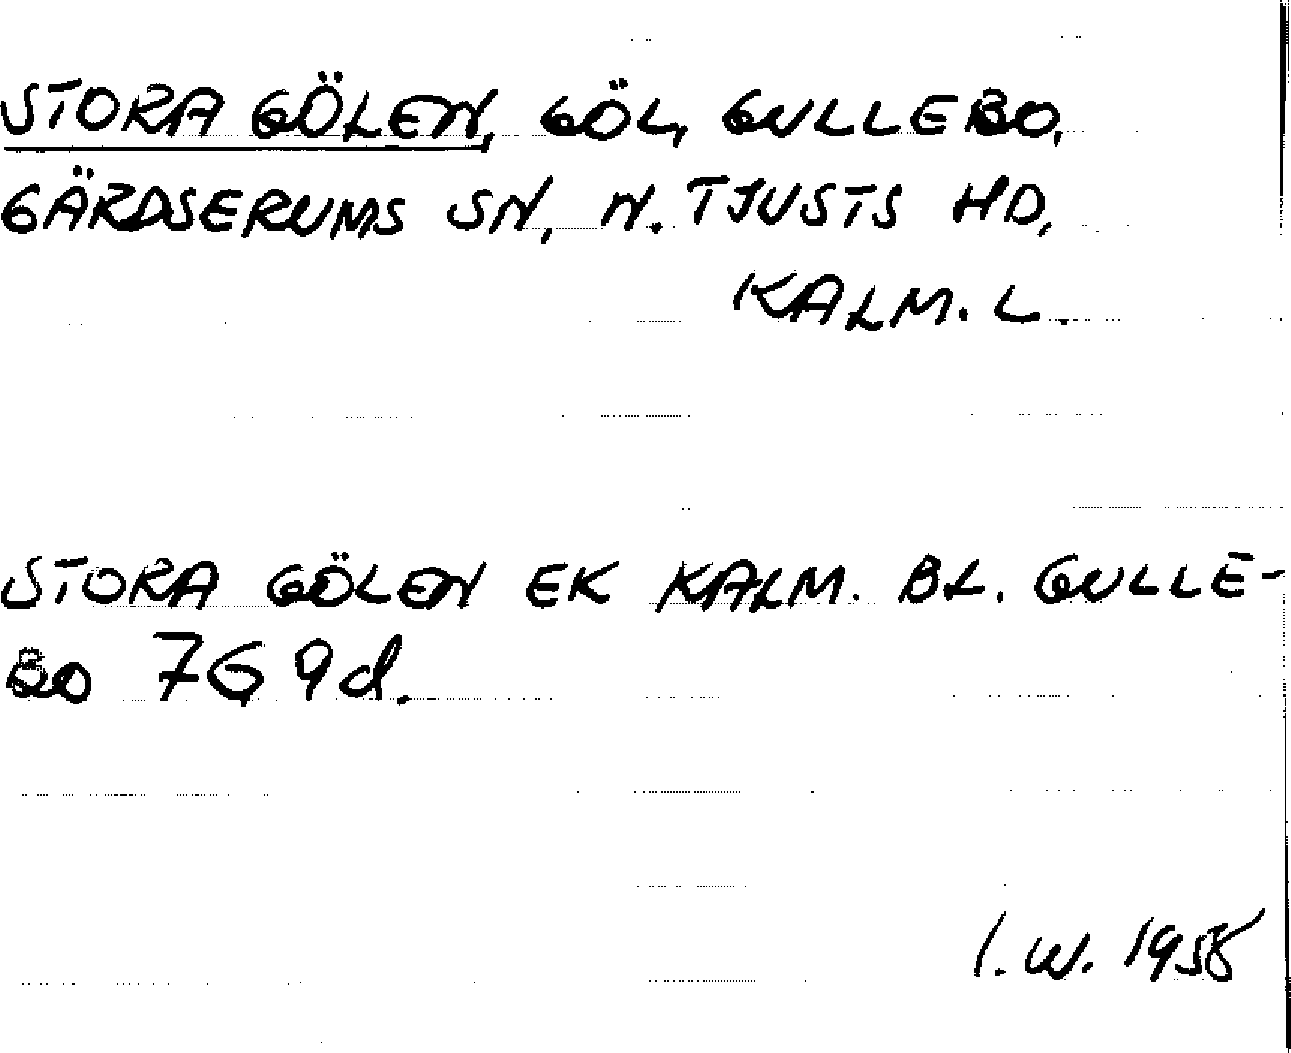 STORA GÖLEN, GÖL, GULLEBO,
GÄRDSERUMS SN, N. TJUSTS HD,
KALM. L.
STORA GÖLEN EK KALM. BL. GULLE-
BO 7G 9d.
I. W. 1958